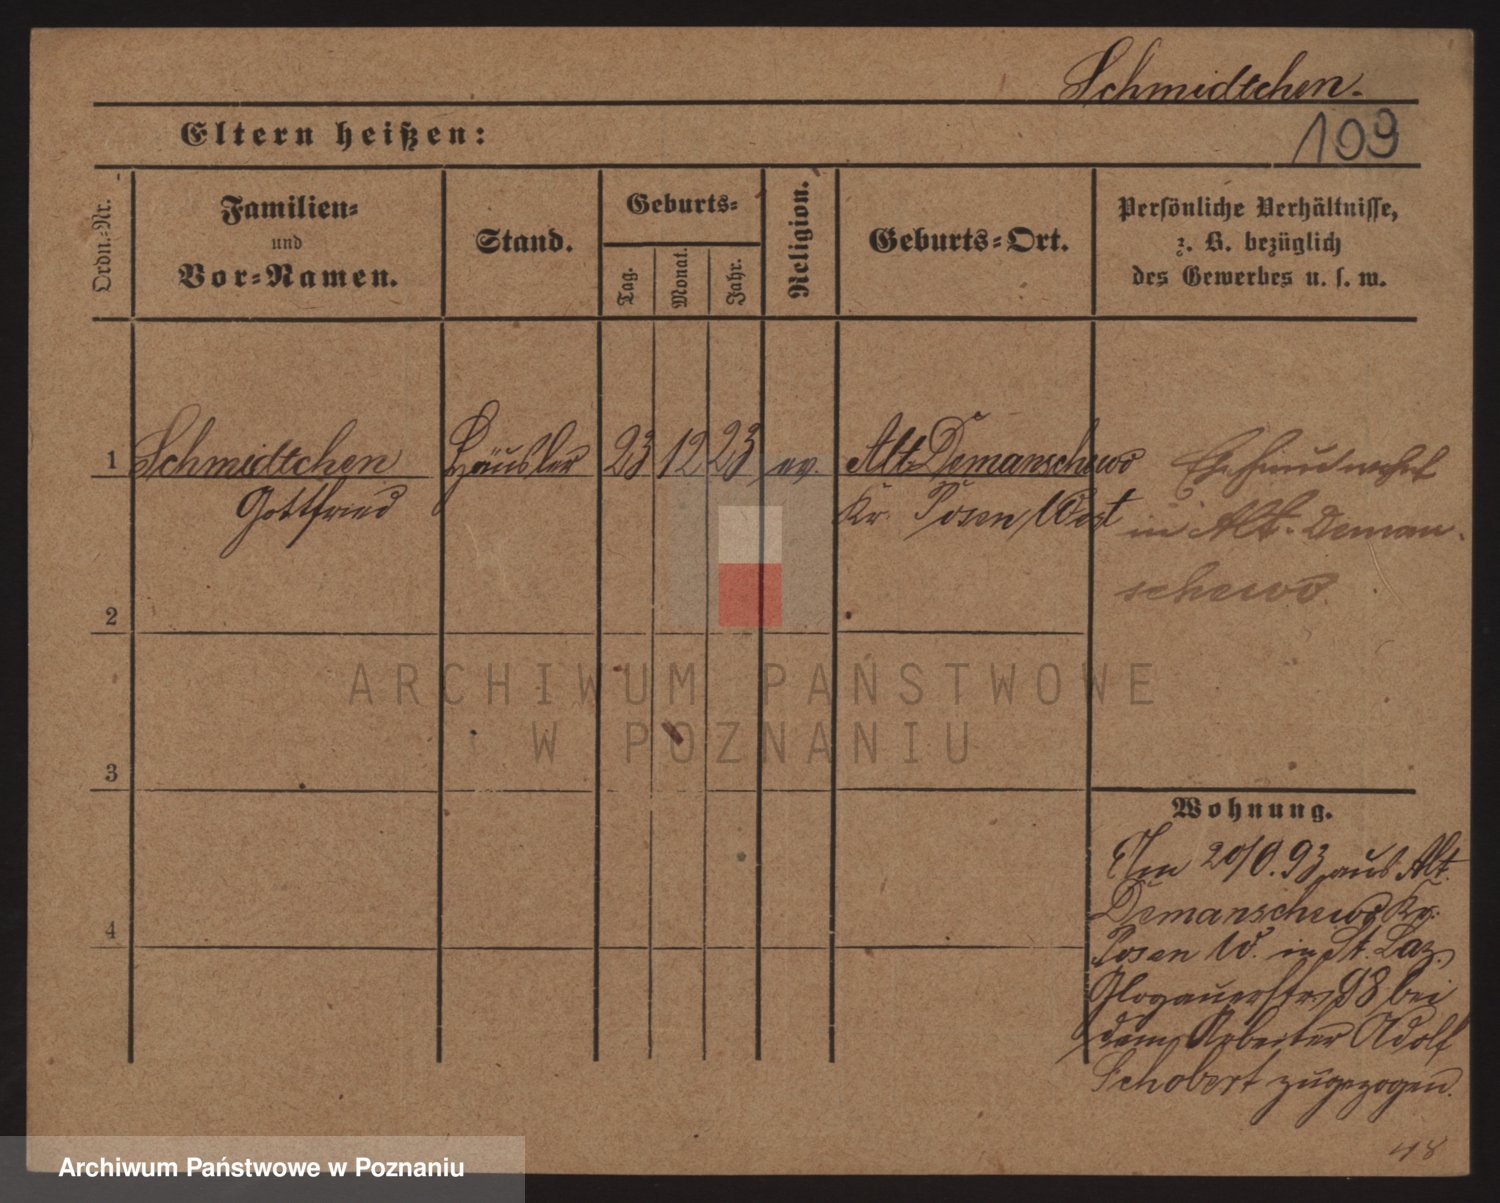 Schmidtchen.
Eltern heißen:
109
Ordn.-Nr.
Familien-
und
Vor-Namen.
Stand.
Geburts-
Tag.
Monat.
Jahr.
Religion.
Geburts-Ort.
Persönliche Verhältnisse,
z. B. bezüglich
des Gewerbes u. s. w.
1 Schmidtchen Häusler 23 12 23 ev. Alt Demanschewo
Gottfried Kr. Posen West
in Alt-Deman-
schewo
2
3
4
Wohnung.
Am 20/10.93 aus Alt
Demanschewo Kr.
Posen W. in St. Laz.
Glogauerstr. 98 bei
dem Arbeiter Adolf
Schobert zugezogen.
48
ARCHIWUM PAŃSTWOWE
W POZNANIU
Archiwum Państwowe w Poznaniu